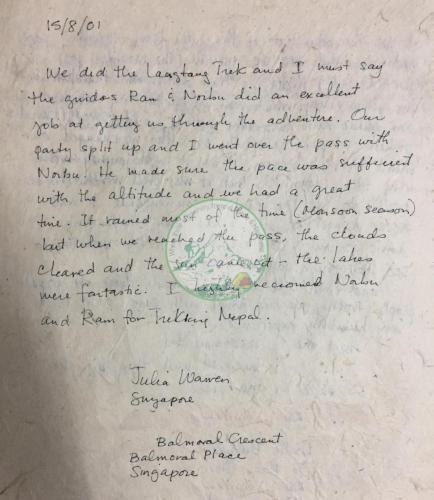 15/8/01
We did the Laagtang Trek and I must say
the guides Ram & Norbu did an excellent
job at getting us through the adventure. Our
party split up and I went over the pass with
Norbu. He made sure the pace was sufficient
with the altitude and we had a great
time. It rained most of the time (Monsoon season)
but when we reached the pass, the clouds
cleared and the sun came out - the lakes
were fantastic. I highly recromed Norbu
and Ram for Trekking Nepal.
Julia Warren
Singapore
Balmoral Crescent
Balmoral Place
Singapore